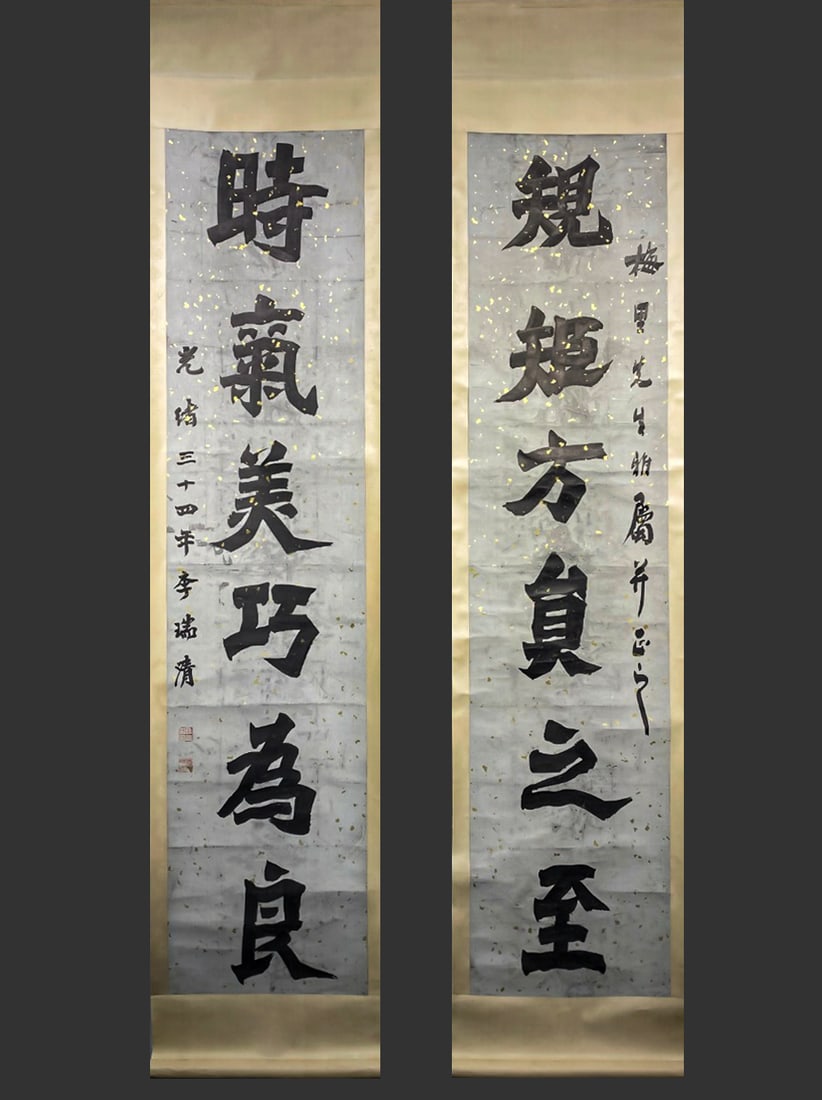 梅里先生雅屬并正之
䂓矩方貟之至
時氣美巧為良
光緒三十四年李瑞清